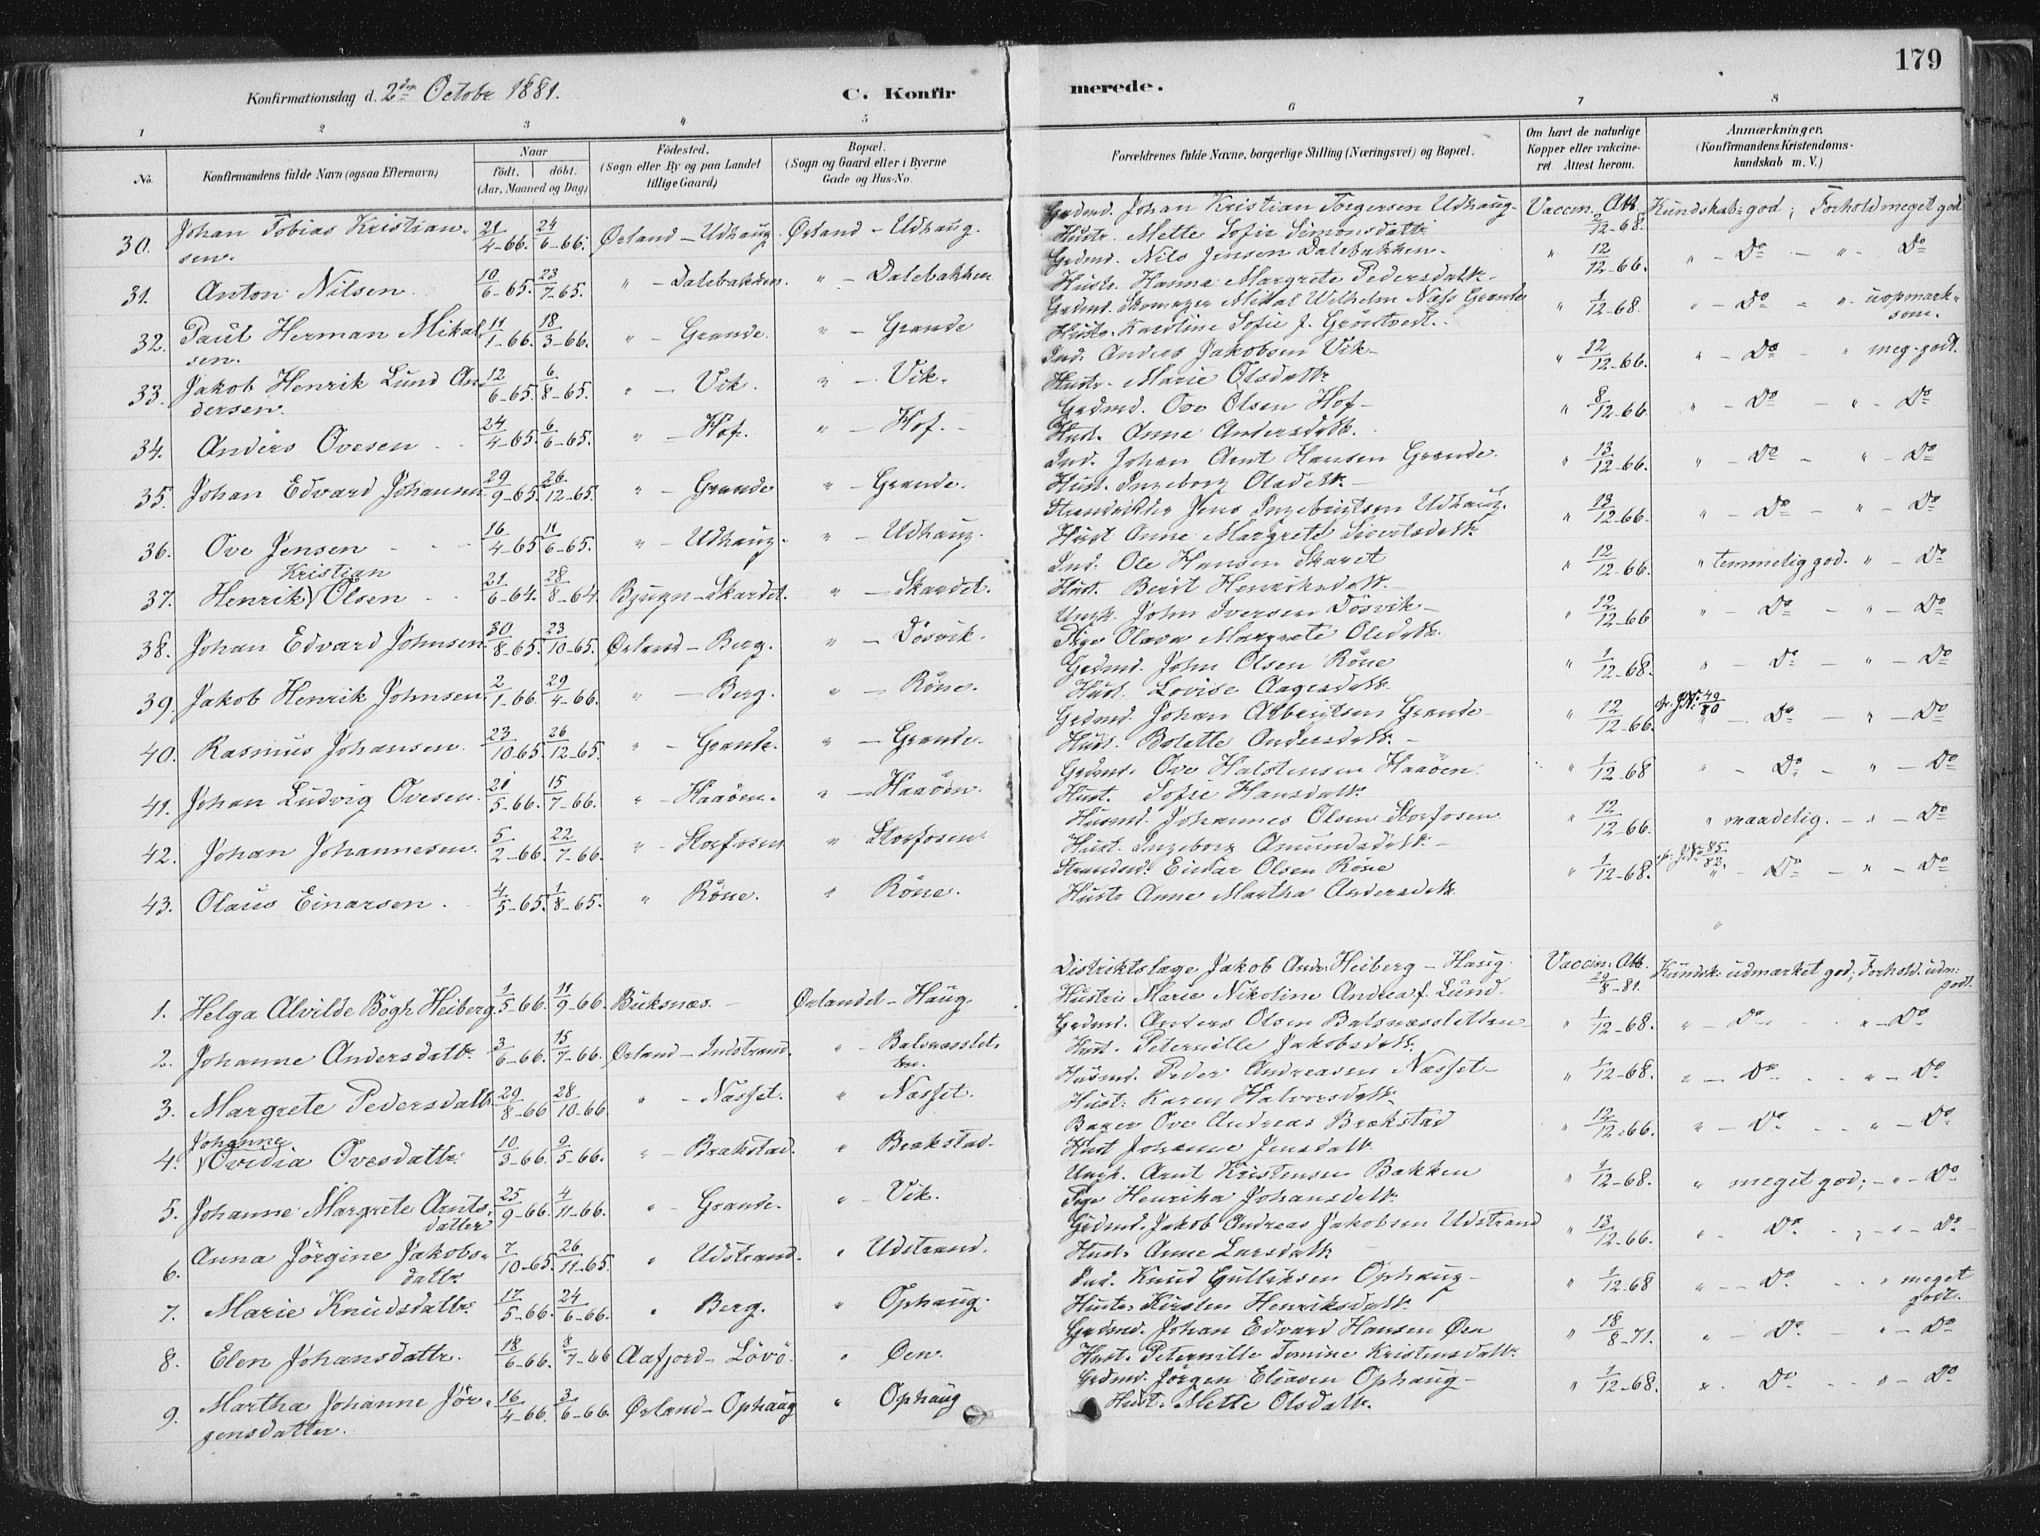 179
Konfirmationsdag d. 2den Octobr 1881.
C. Konfirmerede.
1 2 3 4 5 6 7 8
No. Konfirmandens fulde Navn (ogsaa Efternavn) Naar födt. döbt. (Aar, Maaned og Dag) Födested. (Sogn eller By og paa Landet tillige Gaard) Bopæl. (Sogn og Gaard eller i Byerne Gade og Hus-No. Forældrenes fulde Navne, borgerlige Stilling (Næringsvei) og Bopæl. Om havt de naturlige Kopper eller vakcineret Attest herom. Anmærkninger. (Konfirmandens Kristendomskundskab m. V.)
30. Johan Tobias Kristiansen. 21/4-66. 24/6-66. Örland - Udhaug. Örland - Udhaug. Grdmd. Johan Kristian Torgersen Udhaug Vaccin. Att. 2/12-68. Kundskab: god; Forhold meget god
Hustr. Mette Sofie Simonsdattr
31. Anton Nilsen 10/6-65. 23/7-65. " - Dalebakken. " - Dalebakken Grdmd. Nils Jensen Dalebakken. " 12/12-66. " - Do - " - Do
Hustr. Hanna Margrete Pedersdattr
32. Paul Herman Mikalsen. 11/1-66. 18/3-66. " - Grande. " - Grande Grdmd. Skomager Mikal Wilhelm Næss Grande " 1/12-68. " - Do - " - uopmarksom.
Hustr. Karoline Sofie f. Gröntvedt.
33. Jakob Henrik Lund Andersen. 12/6-65. 6/8-65. " - Vik. " - Vik. Ind. Anders Jakobsen Vik " 12/12-66. " - Do - " meg. godt.
Hustr. Marie Olsdattr
34. Anders Ovesen 24/4-65. 6/6-65. " - Hof. " - Hof. Grdmd. Ove Olsen Hof " 8/12-66. " - Do - " - Do
Hust. Anne Andersdattr.
35. Johan Edvard Johansen 29/9-65. 26/12-65. " - Grande " - Grande. Ind. Johan Arnt Hansen Grande. " 13/12-66. " - Do - " - Do
Hust. Ingeborg Olsdattr
36. Ove Jensen 16/4-65 11/6-65. " - Udhaug. " - Udhaug. Strandsidder Jens Ingebrigtsen Udhaug. " 13/12-66. " - Do - " - Do
Hust Anne Margrete Sivertsdattr
37. Henrik Kristian Olsen 21/6-64. 28/8-64 Bjugn - Skardet. " - Skardet. Ind. Ole Hansen Skaret " 12/12-66. " temmelig god. " - Do
Hust. Berit Henriksdattr.
38. Johan Edvard Johnsen 30/8-65. 23/10-65. Örland - Berg. " - Dösvik. Ungk. John Iversen Dösvik " 12/12-66 " - Do - " - Do
Pige Olava Margrete Olsdattr.
39. Jakob Henrik Johnsen 2/1-66. 29/4-66. " - Berg. " - Röne. Grdmd. John Olsen Röne " 1/12-68. " - Do - " - Do
Hust. Lovise Aagesdattr.
40. Rasmus Johansen. 23/10-65. 26/12-65. " - Grande. " - Grande. Grdmd. Johan Albrigtsen Grande " 12/12-66. cfr. J.N. 49/80 " - Do - " - Do
Hust. Bolette Andersdattr.
41. Johan Ludvig Ovesen. 21/5-66. 15/7-66. " - Haaöen. " - Haaöen. Grdmd. Ove Halstensen Haaöen. " 1/12-68 " - Do - " - Do
Hust. Sofie Hansdattr.
42. Johan Johannesen. 5/2-66. 22/7-66. " - Storfosen " Storfosen. Husmd. Johannes Olsen Storfosen " 12/12-66. " maadelig. - " - Do
Hust. Ingeborg Amundsdattr
43. Olaus Einarsen. 4/5-65. 1/8-65. " Röne. " Röne. Strandsd. Einar Olsen Röne " 1/12-68. cfr. J.N. 85/82 " - Do - " - Do
Hustr Anne Martha Andersdattr
1. Helga Alvilde Bögh Heiberg 1/5-66. 11/9-66. Buksnæs. Örlandet - Haug. Distriktslæge Jakob Andr. Heiberg - Haug. Vaccin. Att. 29/8-81. Kundsk: udmærket god; Forhold: udm. godt.
Hustru Marie Nikoline Andrea f. Lund
2. Johanne Andersdattr. 3/6-66. 15/7-66. Örland - Indstrand. " - Balsnæssletten. Grdmd. Anders Olsen Balsnæssletten " 1/12-68. " - Do - " - Do
Hust. Peternille Jakobsdattr.
3. Margrete Pedersdattr 29/8-66 28/10-66. " - Næsset. " Næsset. Husmd. Peder Andreasen Næsset " 1/12-68. " - Do - " - Do
Hust. Karen Halvorsdattr.
4. Johanne Ovidia Ovesdattr. 10/3-66. 9/5-66. " - Brækstad. " Brækstad. Bager Ove Andreas Brækstad " 12/12-66. " - Do - " - Do
Hust Johanne Jensdattr.
5. Johanne Margrete Arntsdatter 25/9-66. 4/11-66. " - Grande. " Vik. Ungk. Arnt Kristensen Bakken " 1/12-68. " meget god; - " - Do
Pige Henrika Johansdattr
6. Anna Jörgine Jakobsdattr. 7/10-65. 26/11-65. " Udstrand. " Udstrand. Grdmd. Jakob Andreas Jakobsen Udstrand " 13/12-66. " Do - " - Do
Hust. Anne Larsdattr
7. Marie Knudsdattr. 17/5-66. 24/6-66. " Berg. " Ophaug. Ind. Knud Gulliksen Ophaug " 1/12-68 " - Do - " meget godt.
Hustr. Kirsten Henriksdattr.
8. Elen Johansdattr. 18/6-66. 8/7-66 Aafjord - Lövö. " Öen. Grdmd. Johan Edvard Hansen Öen " 18/8-71. " - Do - " - Do
Hust. Peternille Tomine Kristensdattr.
9. Martha Johanne Jörgensdatter. 16/4-66. 3/6-66. Örland - Ophaug " Ophaug Grdmd. Jörgen Eliasen Ophaug " 1/12-68. " Do - " - Do
Hust. Mette Olsdattr.